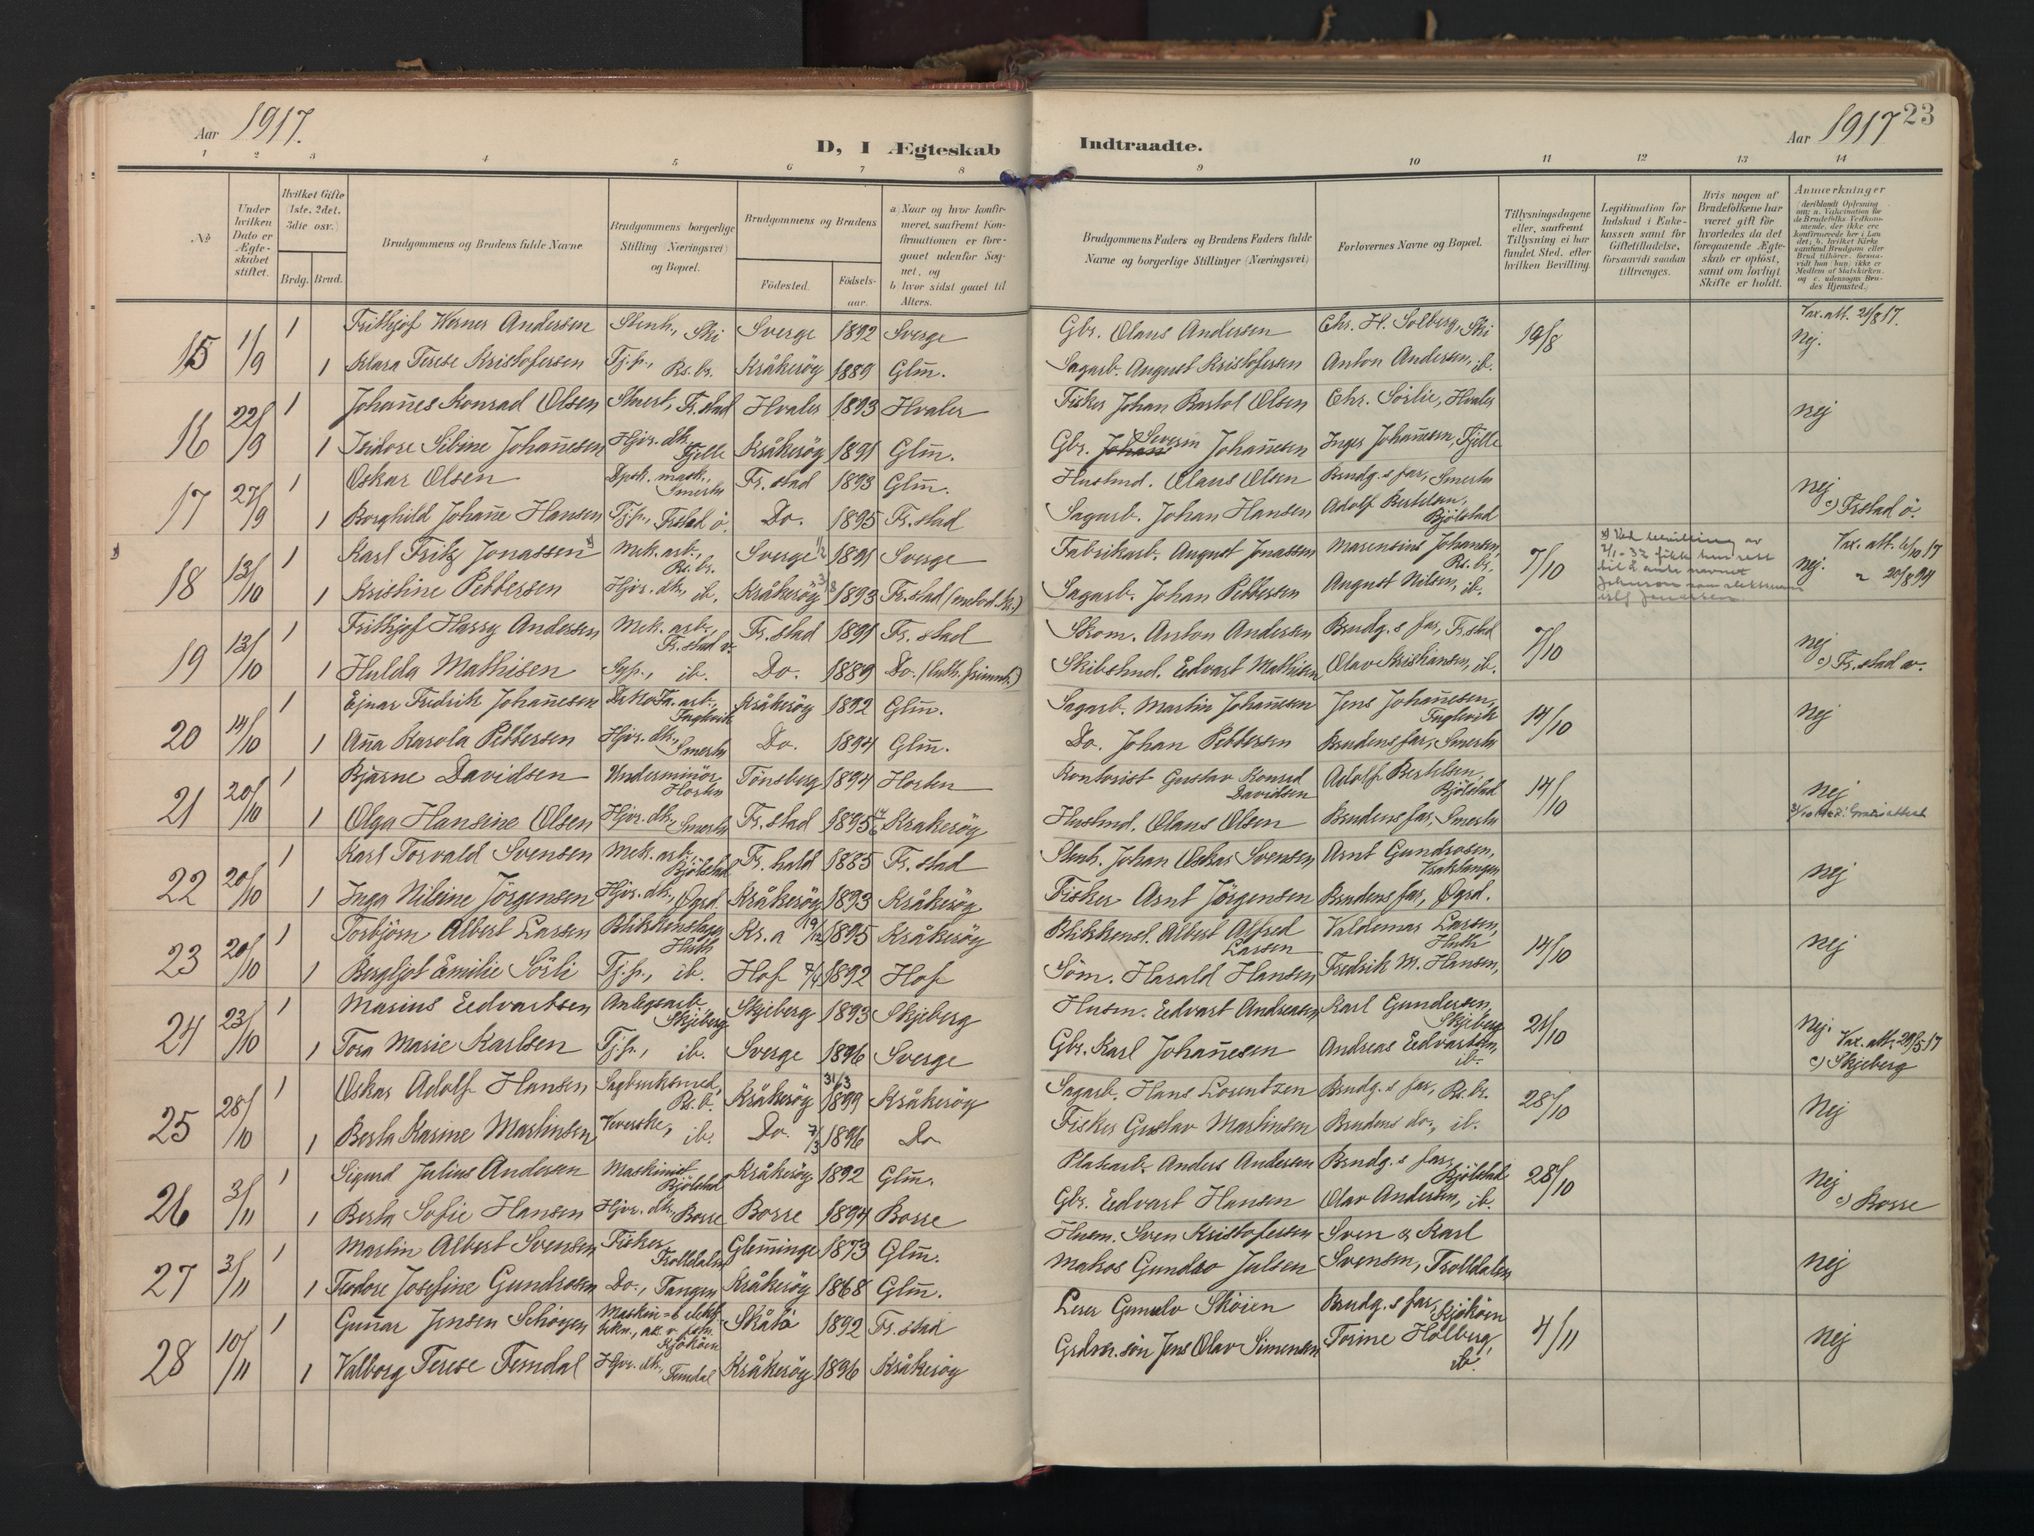 Aar 1917.
D, I Ægteskab Indtraadte.
Aar 1917 23
1 2 3 4 5 6 7 8 9 10 11 12 13 14
No
Under hvilken Dato er Ægteskabet stiftet.
Hvilket Gifte (1ste, 2det, 3die osv.)
Brdg. Brud.
Brudgommens og Brudens fulde Navne
Brudgommens borgerlige Stilling (Næringsvei) og Bopæl.
Brudgommens og Brudens
Fødested. Fødselsaar.
a) Naar og hvor konfirmeret, saafremt Konfirmationen er foregaaet udenfor Sognet, og
b) hvor sidst gaaet til Alters.
Brudgommens Faders og Brudens Faders fulde Navne og borgerlige Stillinger (Næringsvei)
Forlovernes Navne og Bopæl.
Tillysningsdagene eller, saafremt Tillysning ei har fundet Sted, efter hvilken Bevilling.
Legitimation for Indskud i Enkekassen samt for Giftetilladelse, forsaavidt saadan tiltrænges.
Hvis nogen af Brudefolkene har været gift før hvorledes da det foregaaende Ægteskab er opløst, samt om lovligt Skifte er holdt.
Anmærkninger
(deriblandt Oplysning om: a. Vakcination for de Brudefolks Vedkommende, der ikke ere konfirmerede her i Landet; b. hvilket Kirkesamfund Brudgom eller Brud tilhører, forsaavidt han (hun) ikke er Medlem af Statskirken og c. udensogns Brudes Hjemsted.)
15 1/9 1 Frithjof Werner Andersen Stenh., Ski Sverge 1892 Sverge Gbr. Olaus Andersen Chr. H. Solberg, Ski 19/8 Vax. att. 21/8 17. Nej.
1 Klara Terese Kristofersen Tj.p., Rs. br. Kråkerøy 1889 Glm. Sagarb. August Kristofersen Anton Andersen, ib.
16 22/9 1 Johannes Konrad Olsen Fr.stad Hvaler 1893 Hvaler Fisker Johan Bartol Olsen Chr. Sørlie, Hvaler nej
1 Isidore Sibine Johannesen Hjv. dtr., Fjelle Kråkerøy 1891 Glm. Gbr. Johan Severin Johannesen Inger Johannesen, Fjelle
17 27/9 1 Oskar Olsen Dpsk. mask., Smerta Fr.stad 1893 Glm. Husmd. Olaus Olsen Brudg.s far, Smerta nej
1 Borghild Johanne Hansen Tj.p., Frstad ø. Do. 1895 Fr.stad Sagarb. Johan Hansen Adolf Bertelsen, Bjølstad c) Frstad ø.
18 13/10 1 Karl Fritz Jonassen x) Mek. arb., Rs. br. Sverge 1/2 1891 Sverge Fabrikarb. August Jonassen Marensius Johansen, Rs. br. 7/10 Vax. att. 6/10 17 nej.
x) Ved bevilling av 2/1-32 fikk han rett til å anta navnet Johnson som slektsnavn istf Jonassen
1 Kristine Pettersen Hjv. dtr., ib. Kråkerøy 3/8 1893 Fr.stad (metod. kr.) Sagarb. Johan Pettersen August Nilsen, ib. " 20/8 94
19 13/10 1 Frithjof Harry Andersen Mek. arb., Fr.stad v. Fr.stad 1891 Fr.stad Skom. Anton Andersen Brudg.s far, Fr.stad 7/10 nej
1 Hulda Mathisen Syp., ib. Do. 1889 Do. (luth. frimenh.) Skibstmd. Edvart Mathisen Olav Kristiansen, ib. c) Fr.stad v.
20 14/10 1 Ejnar Fredrik Johannesen arb., Fuglevik Kråkerøy 1892 Glm. Sagarb. Martin Johannesen Jens Johannesen, Fuglevik 14/10 nej
1 Anna Karola Pettersen Hjv. dtr., Smerta Do. 1894 Glm. Do. Johan Pettersen Brudens far, Smerta
21 20/10 1 Bjarne Davidsen Underminør Horten Tønsberg 1894 Horten Kontorist Gustav Konrad Davidsen Adolf Bertelsen, Bjølstad 14/10 nej
1 Olga Hansine Olsen Hjv. dtr., Smerta Fr.stad 1895 Kråkerøy Husmd. Olaus Olsen Brudens far, Smerta
22 20/10 1 Karl Torvald Svensen Mek. arb., Bjølstad Fr.hald 1885 Fr.stad Stenh. Johan Oskar Svensen Arnt Gundrosen, Vraktangen nej
1 Inga Nilsine Jørgensen Hjv. dtr., Øgrd. Kråkerøy 1893 Kråkerøy Fisker Arnt Jørgensen Brudens far, Øgrd.
23 20/10 1 Torbjørn Albert Larsen Blikkenslager, Huth Kr.a 19/12 1895 Kråkerøy Blikkensl. Albert Alfred Larsen Valdemar Larsen, Huth 14/10 nej
1 Bergljot Emilie Sørli Tj.p., ib. Hof 7/4 1892 Hof Søm. Harald Hansen Fredrik M. Hansen,
24 23/10 1 Marius Edvartsen Anlegsarb. Skjeberg Skjeberg 1893 Skjeberg Husm. Edvart Andreasen Karl Gundersen, Skjeberg 21/10 nej.
1 Tora Marie Karlsen Tj.p., ib. Sverge 1896 Sverge Gbr. Karl Johannesen Andreas Edvartsen, ib. Vax. att. 29/5 17 c) Skjeberg
25 28/10 1 Oskar Adolf Hansen Sagbruksmed., Rs. b. Kråkerøy 31/3 1899 Kråkerøy Sagarb. Hans Lorentzen Brudg.s far, Rs. br. 28/10 Nej
1 Berta Karine Martinsen Veverske, ib. Do. 7/3 1896 Do Fisker Gustav Martinsen Brudens do., ib.
26 3/11 1 Sigurd Julius Andersen Maskinist Bjølstad Kråkerøy 1892 Glm. Platearb. Anders Andersen Brudg.s far, Bjølstad 28/10 Nej
1 Berta Sofie Hansen Hjv. dtr., Borre Borre 1894 Borre Gbr. Edvart Hansen Olav Andersen, ib. c) Borre
27 3/11 1 Martin Albert Svensen Fisker, Trolldalen Glemminge 1873 Glm. Husm. Sven Kristofersen Sven & Karl nej
1 Teodore Josefine Gundrosen Do., Tangen Kråkerøy 1868 Glm. Makos Gundro Julsen Svensen, Trolldalen
28 10/11 1 Gunnar Jensen Schøyen Bjökøen Skåtø 1892 Fr.stad Brudg.s far, Bjökøen 4/11 nej
1 Valborg Terese Femdal Hjv. dtr., Femdal Kråkerøy 1896 Kråkerøy Grdm. søn Jens Olav Simensen Torine Holberg, ib.